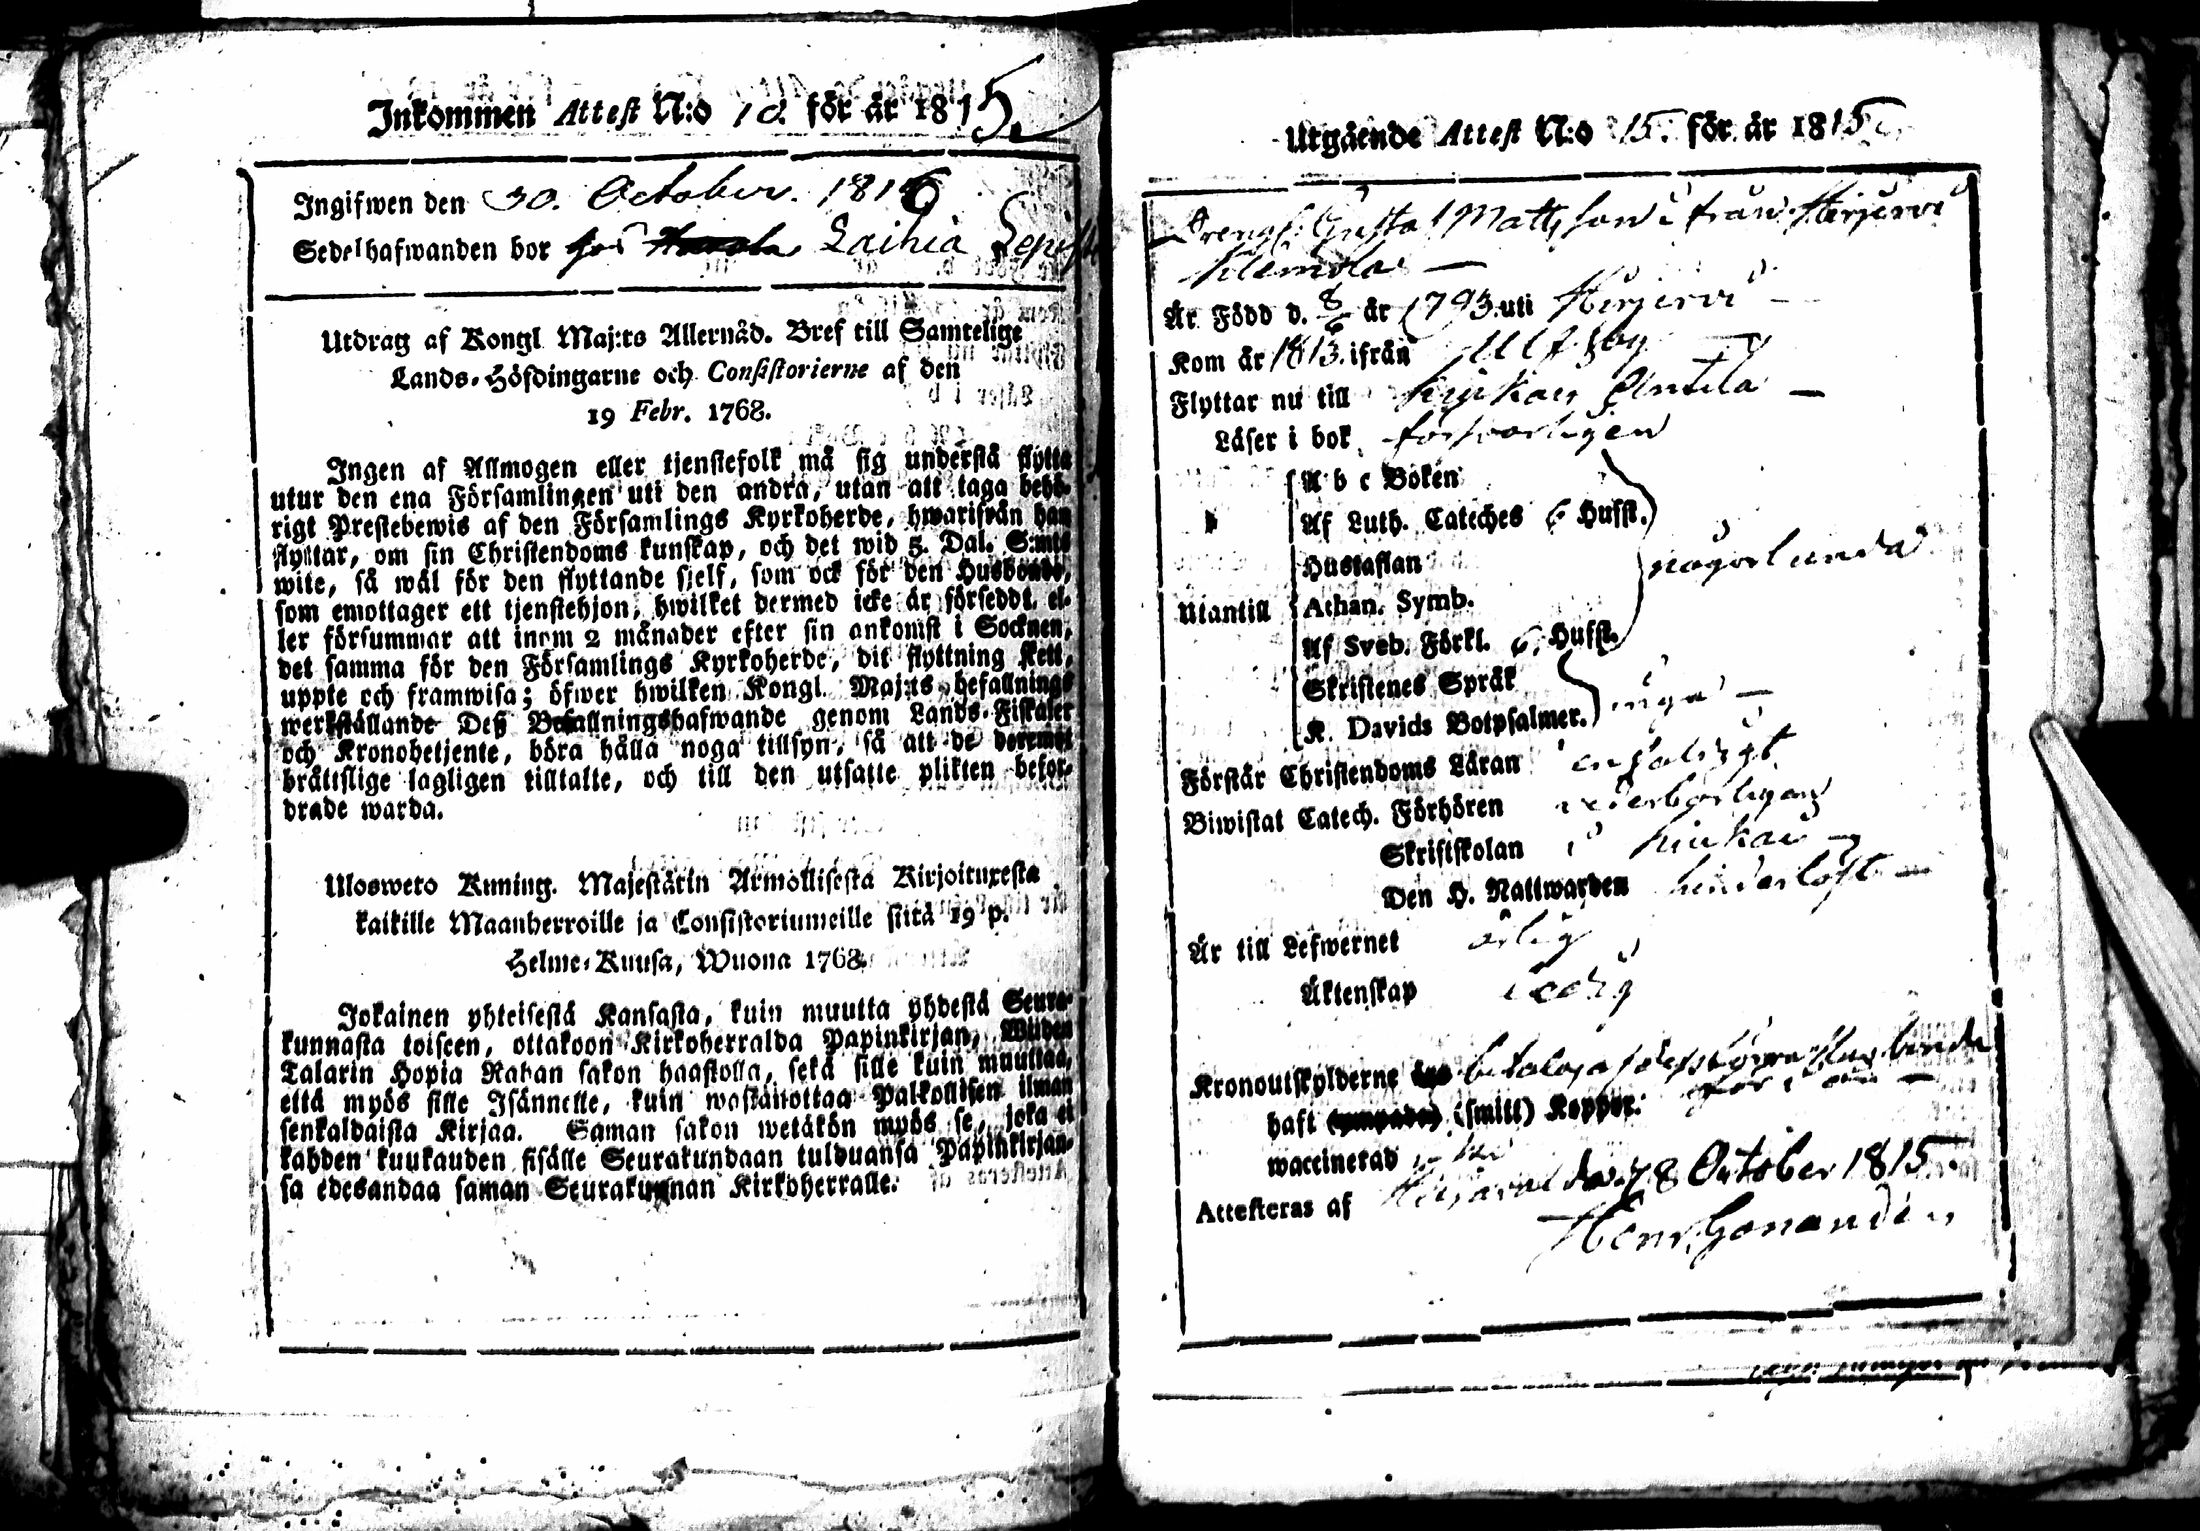 Inkommen Attest N:o 10. för år 1815.
Ingifwen den 30. October. 1816
Sedelhafwanden bor hos Laihia
Utdrag af Kongl. Maj:ts Allernåd. Bref till Samtelige
Lands-Höfdingarne och Consistorierne af den
19 Febr. 1768.
Ingen af Allmogen eller tjenstefolk må sig understå flytta
utur den ena Församlingen uti den andra, utan att taga behö-
rigt Prestebewis af den Församlings Kyrkoherde, hwarifrån han
flyttar, om sin Christendoms kunskap, och det wid 5. Dal. S:mts
wite, så wäl för den flyttande sjelf, som ock för den Husbonde,
som emottager ett tjenstehjon, hwilket dermed icke är förseddt, el-
ler försummar att inom 2 månader efter sin ankomst i Socknen,
det samma för den Församlings Kyrkoherde, dit flyttning skett,
uppte och framwisa; öfwer hwilken Kongl. Maj:ts befallnings
werkställande Deß Befallningshafwande genom Lands-Fiskaler
och Kronobetjente, böra hålla noga tillsyn, så att de deremot
bråttslige lagligen tilltalte, och till den utsatte plikten befor-
drade warda.
Uloswето Kuning. Majestärin Armollisesta Kirjoituxesta
kaikille Maanherroille ja Consistoriumeille siitä 19 p.
Helme-Kuusa, Wuona 1768.
Jokainen yhteisestä Kansasta, kuin muutta yhdestä Seura-
kunnasta toiseen, ottakoon Kirkoherralda Papinkirjan, Wiiden
Talarin Hopia Rahan sakon haastolla, sekä sille kuin muuttaa,
että myös sille Isännelle, kuin wastanottaa Palkollisen ilman
senkaldaista Kirjaa. Saman sakon wetäkön myös se, joka ei
kahden kuukauden sisälle Seurakundaan tulduansa Papinkirjan-
sa edesandaa saman Seurakunnan Kirkoherralle.
Utgående Attest N:o 15. för år 1815
Drengs. Gustaf Mattsson ifrån
Klemola —
Är Född d. 8/6 år 1793. uti
Kom år 1813. ifrån Ulfsby —
Flyttar nu till Antila —
Läser i bok försvarligen
A b c Boken
Af Luth. Cateches 6 Hufst.
Hustaflan någorlunda
Utantill Athan. Symb.
Af Sveb. Förkl. 6. Hufst.
Skriftenes Språk
K. Davids Botpsalmer. inga —
Förstår Christendoms Läran enfaldigt
Biwistat Catech. Förhören vederbörligen
Skriftskolan i
Den H. Nattwarden hinderlöst —
Är till Lefwernet ärlig
Äktenskap ledig
Kronoutskylderne betalas
haft (smitt) Koppor.
waccinerad
Attesteras af October 1815.
Henr. Gonandin